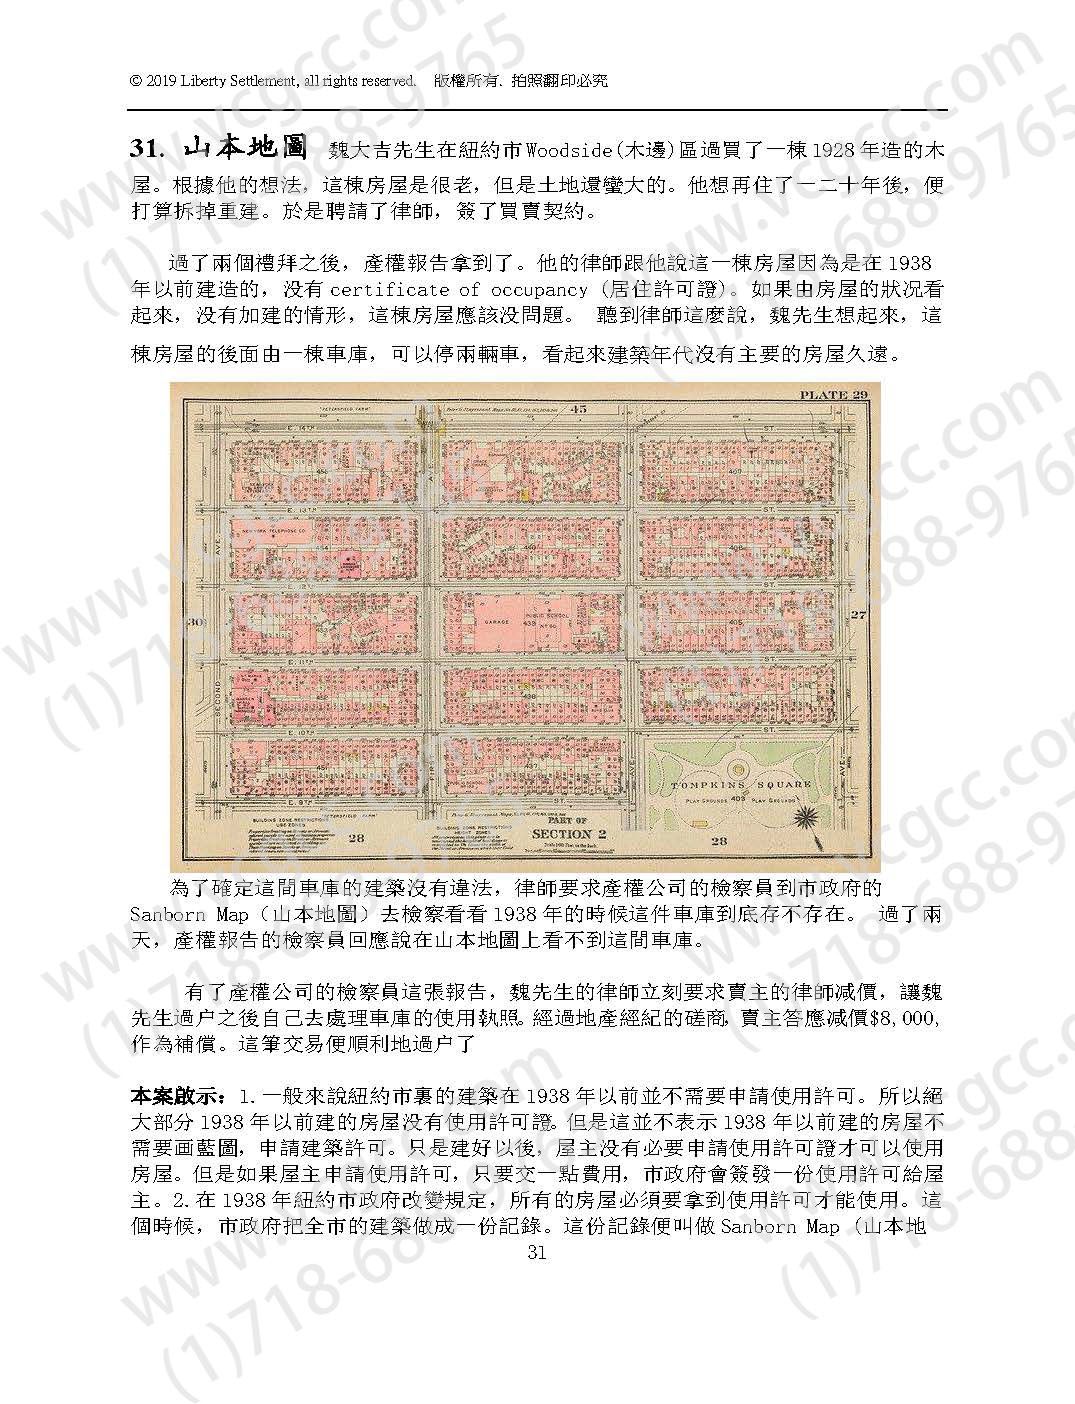 © 2019 Liberty Settlement, all rights reserved. 版權所有. 拍照翻印必究
31. 山本地圖 魏大吉先生在紐約市Woodside(木邊)區過買了一棟1928年造的木
屋。根據他的想法，這棟房屋是很老，但是土地還蠻大的。他想再住了一二十年後，便
打算拆掉重建。於是聘請了律師，簽了買賣契約。
過了兩個禮拜之後，產權報告拿到了。他的律師跟他說這一棟房屋因為是在1938
年以前建造的，没有certificate of occupancy (居住許可證)。如果由房屋的狀况看
起來，没有加建的情形，這棟房屋應該没問題。 聽到律師這麼說，魏先生想起來，這
棟房屋的後面由一棟車庫，可以停兩輛車，看起來建築年代沒有主要的房屋久遠。
PLATE 29
45
E. 14TH ST.
E. 13TH ST.
NEW YORK TELEPHONE CO.
E. 12TH ST.
GARAGE 439 PUBLIC SCHOOL
30
27
E. 11TH ST.
SECOND AVE.
E. 10TH ST.
TOMPKINS SQUARE
PLAY GROUNDS 403 PLAY GROUNDS
E. 9TH ST.
BUILDING ZONE RESTRICTIONS
USE ZONES
BUILDING ZONE RESTRICTIONS
HEIGHT ZONES
28
PART OF
SECTION 2
28
為了確定這間車庫的建築沒有違法，律師要求產權公司的檢察員到市政府的
Sanborn Map（山本地圖）去檢察看看1938年的時候這件車庫到底存不存在。 過了兩
天，產權報告的檢察員回應說在山本地圖上看不到這間車庫。
有了產權公司的檢察員這張報告，魏先生的律師立刻要求賣主的律師减價，讓魏
先生過户之後自己去處理車庫的使用執照。經過地產經紀的磋商，賣主答應减價$8,000,
作為補償。這筆交易便順利地過户了
本案啟示：1.一般來說紐約市裏的建築在1938年以前並不需要申請使用許可。所以絕
大部分1938年以前建的房屋没有使用許可證。但是這並不表示1938年以前建的房屋不
需要画藍圖，申請建築許可。只是建好以後，屋主没有必要申請使用許可證才可以使用
房屋。但是如果屋主申請使用許可，只要交一點費用，市政府會簽發一份使用許可給屋
主。2.在1938年紐約市政府改變規定，所有的房屋必須要拿到使用許可才能使用。這
個時候，市政府把全市的建築做成一份記錄。這份記錄便叫做Sanborn Map（山本地
31
www.vcgcc.com
(1)718-688-9765